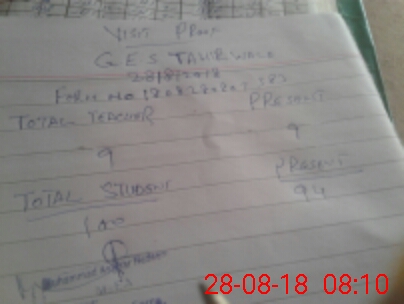 VISIT PROOF
G E S TAHIRWALA
28/8/2018
FORM NO
TOTAL TEACHER PRESENT
9 9
TOTAL STUDENT PRESENT
100 94
28-08-18 08:10